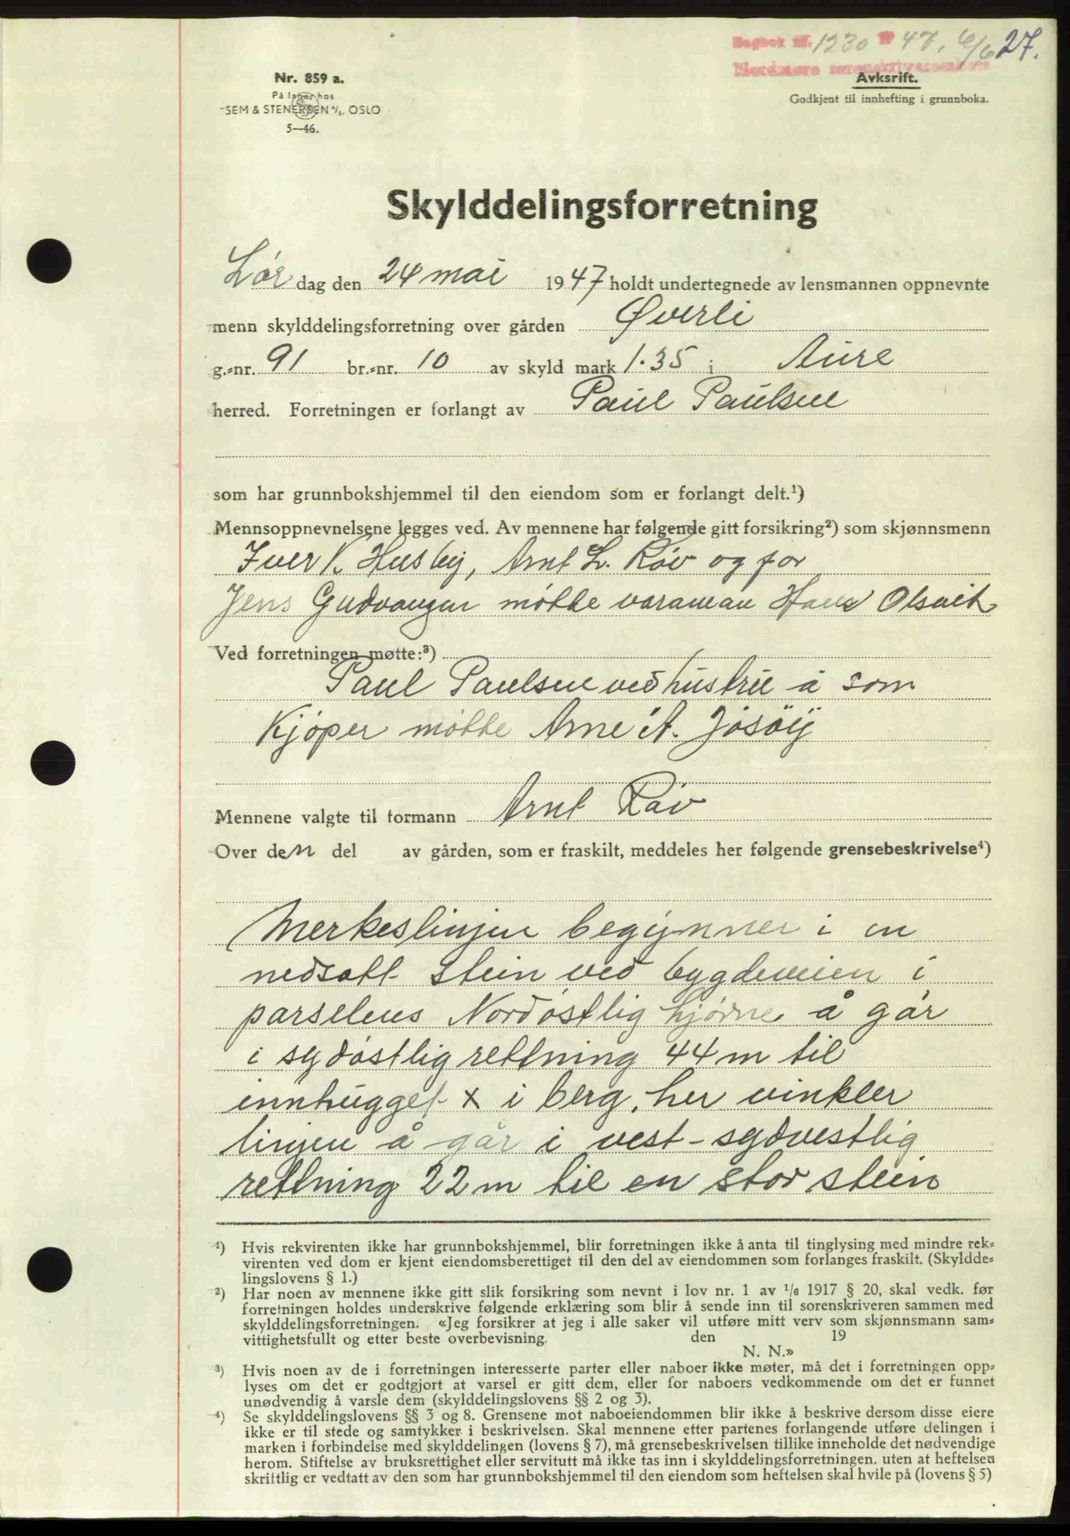 Dagbok nr. 1230 19 47. 6/6 27.
Nordmøre sorenskriverembede
Nr. 859 a.
På lager hos
SEM & STENERSEN A/S, OSLO
5—46.
Avksrift.
Godkjent til innhefting i grunnboka.
Skylddelingsforretning
Lør dag den 24 mai 1947 holdt undertegnede av lensmannen oppnevnte
menn skylddelingsforretning over gården Øverli
g.-nr. 91 br.-nr. 10 av skyld mark 1.35 i Aure
herred. Forretningen er forlangt av Paul Paulsen
som har grunnbokshjemmel til den eiendom som er forlangt delt.¹)
Mennsoppnevnelsene legges ved. Av mennene har følgende gitt forsikring²) som skjønnsmenn
Iver K. Husby, Arnt L. Røv og for
Jens Gudvangen møtte varaman Hans Olsvik
Ved forretningen møtte:³)
Paul Paulsen ved hustru å som
Kjøper møtte Arne A. Jøsøy
Mennene valgte til formann Arnt Røv
Over den del av gården, som er fraskilt, meddeles her følgende grensebeskrivelse⁴)
Merkeslinjen begynner i en
nedsatt stein ved bygdeveien i
parselens Nordøstlig hjørne å går
i sydøstlig rettning 44 m til
innhugget x i berg, her vinkler
linjen å går i vest-sydvestlig
rettning 22 m til en stor stein
¹) Hvis rekvirenten ikke har grunnbokshjemmel, blir forretningen ikke å anta til tinglysing med mindre rek-
virenten ved dom er kjent eiendomsberettiget til den del av eiendommen som forlanges fraskilt. (Skyldde-
lingslovens § 1.)
²) Har noen av mennene ikke gitt slik forsikring som nevnt i lov nr. 1 av 1/6 1917 § 20, skal vedk. før
forretningen holdes underskrive følgende erklæring som blir å sende inn til sorenskriveren sammen med
skylddelingsforretningen. «Jeg forsikrer at jeg i alle saker vil utføre mitt verv som skjønnsmann sam-
vittighetsfullt og etter beste overbevisning. den 19
N. N.»
³) Hvis noen av de i forretningen interesserte parter eller naboer ikke møter, må det i forretningen opp-
lyses om det er godtgjort at varsel er gitt dem, eller for naboers vedkommende om det er funnet
unødvendig å varsle dem (skylddelingslovens §§ 2 og 3).
⁴) Se skylddelingslovens §§ 3 og 8. Grensene mot naboeiendommen blir ikke å beskrive dersom disse eiere
ikke er til stede og samtykker i beskrivelsen. Skal mennene etter partenes forlangende utføre delingen i
marken i forbindelse med skylddelingen (lovens § 7), må grensebeskrivelsen tillike inneholde det nødvendige
herom. Stiftelse av bruksrettighet eller servitutt må ikke tas inn i skylddelingsforretningen, uten at heftelsen
skriftlig er vedtatt av den som har grunnbokshjemmel til den eiendom som heftelsen skal hvile på (lovens § 5)